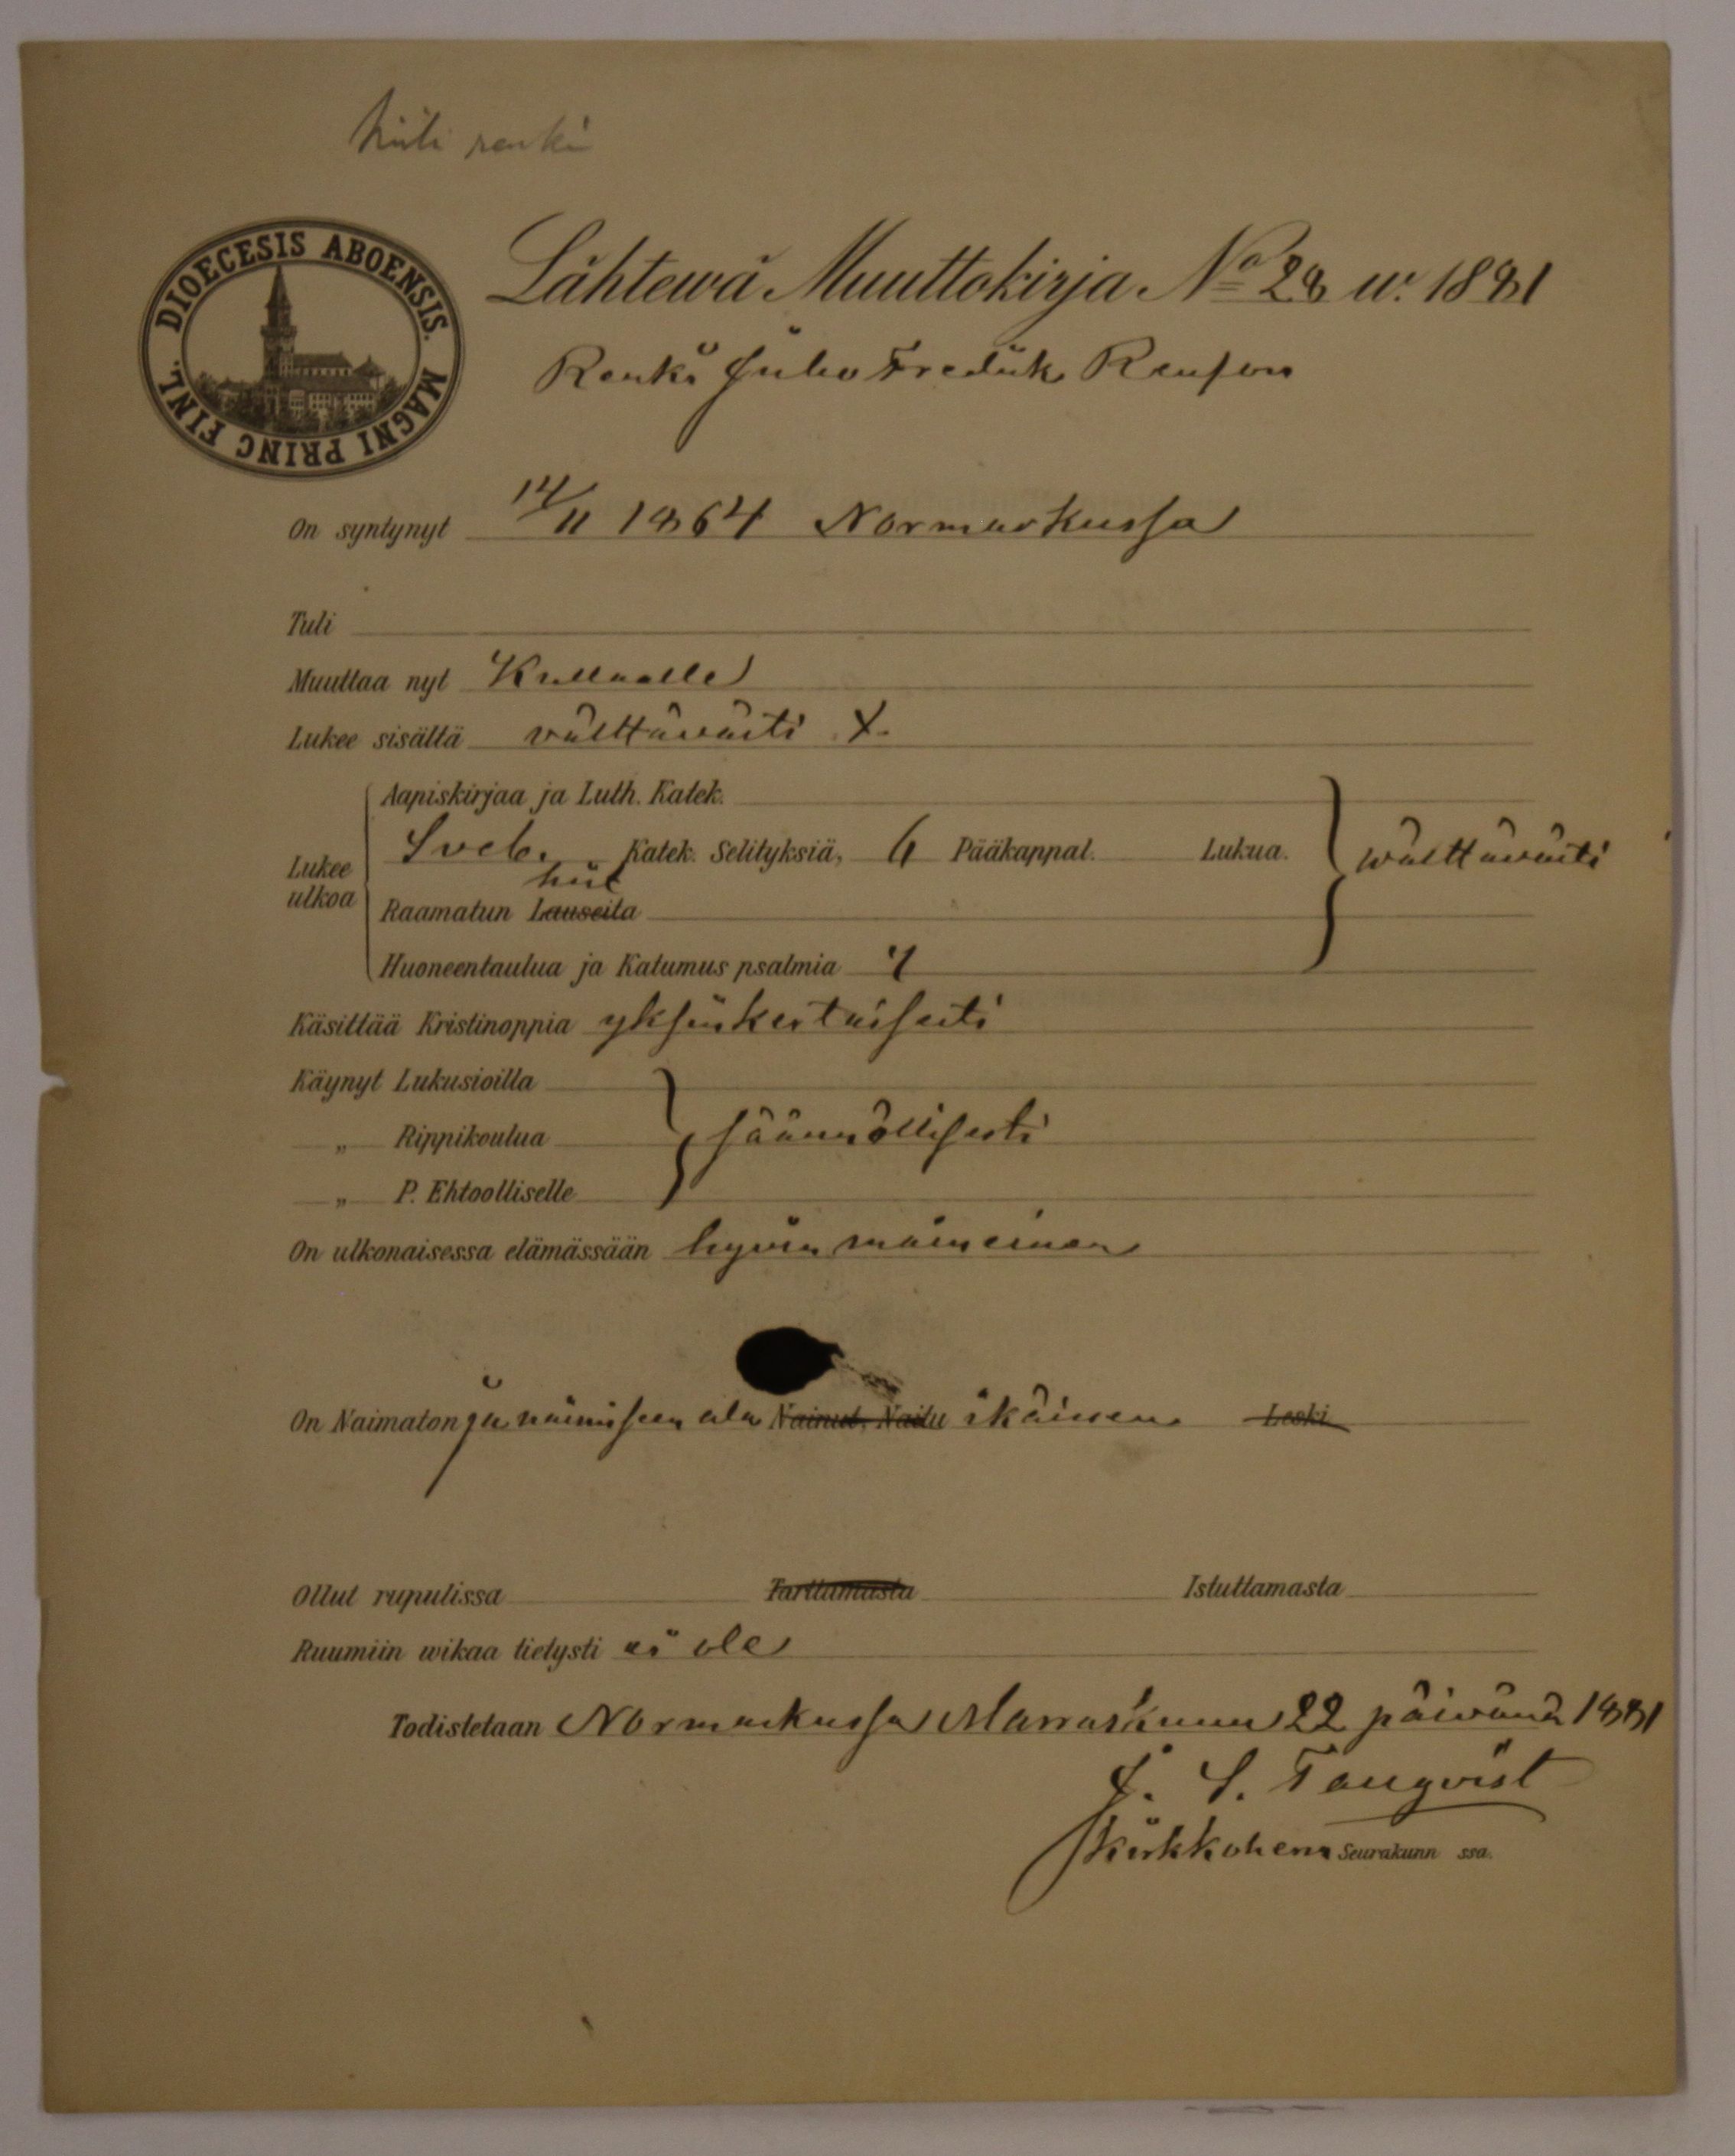 renki
DIOECESIS ABOENSIS. MAGNI PRINC FINL.
Lähtewä Muuttokirja No 28 w. 1881
Renki Juho Fredrik
On syntynyt 14/11 1864 Normarkussa
Tuli
Muuttaa nyt Kullaalle
Lukee sisältä välttäväisti X.
Aapiskirjaa ja Luth. Katek.
Lukee ulkoa Sveb. Katek. Selityksiä, 6 Pääkappal. Lukua. wälttäwästi
hist
Raamatun Lauseita
Huoneentaulua ja Katumus psalmia 7
Käsittää Kristinoppia yksinkertaisesti
Käynyt Lukusioilla
„ Rippikoulua säännöllisesti
„ P. Ehtoolliselle
On ulkonaisessa elämässään hyvin maineinen
On Naimaton ja naimiseen ala Nainut, Naitu ikäinen Leski
Ollut rupulissa Tarttumasta Istuttamasta
Ruumiin wikaa tietysti ei ole
Todistetaan Normarkussa Marraskuun 22 päivänä 1881
J. S. Tanqvist
Kirkkoherra Seurakunn ssa.